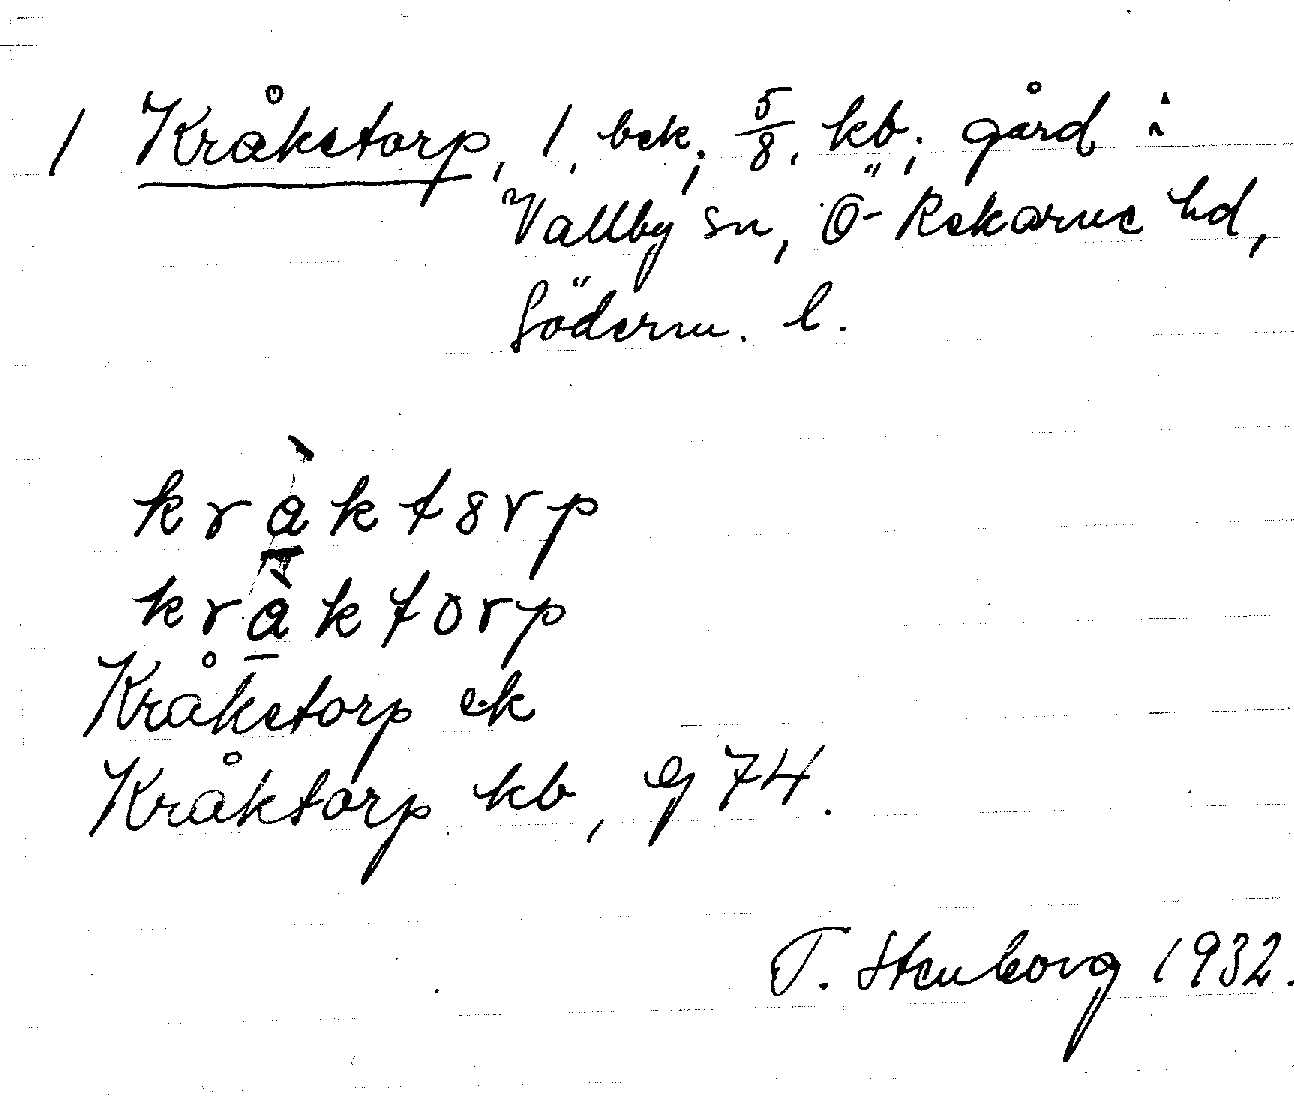 1 Kråketorp, 1, bek; 5/8, kb; gård i
Vallby sn, Ö-Rekarne hd,
Söderm. l.
kràktȣrp
kràktorp
Kråketorp ek
Kråktorp kb, eg 74.
T. Stenborg 1932.